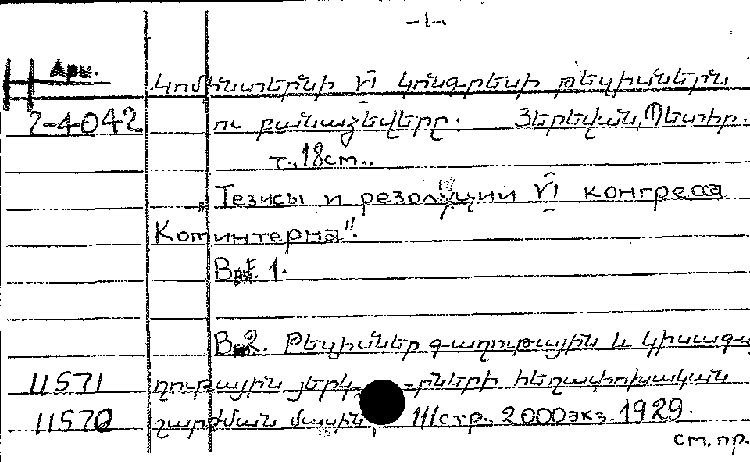 -1-
Арм.
Կոմինտերնի VI կոնգրեսի թեզիսներն
2-4042 ու բանաձեվերը. Յերեվան, Պետհր.
т., 18см..
„Тезисы и резолуции VI конгресса
Коминтерна".
Вып. 1.
В. 2. Թեզիսներ գաղութային և կիսագա
11571 ղութային յերկ րների հեղափոխական
11570 շարժման մասին, 111стр. 2000экз. 1929.
см. пр.